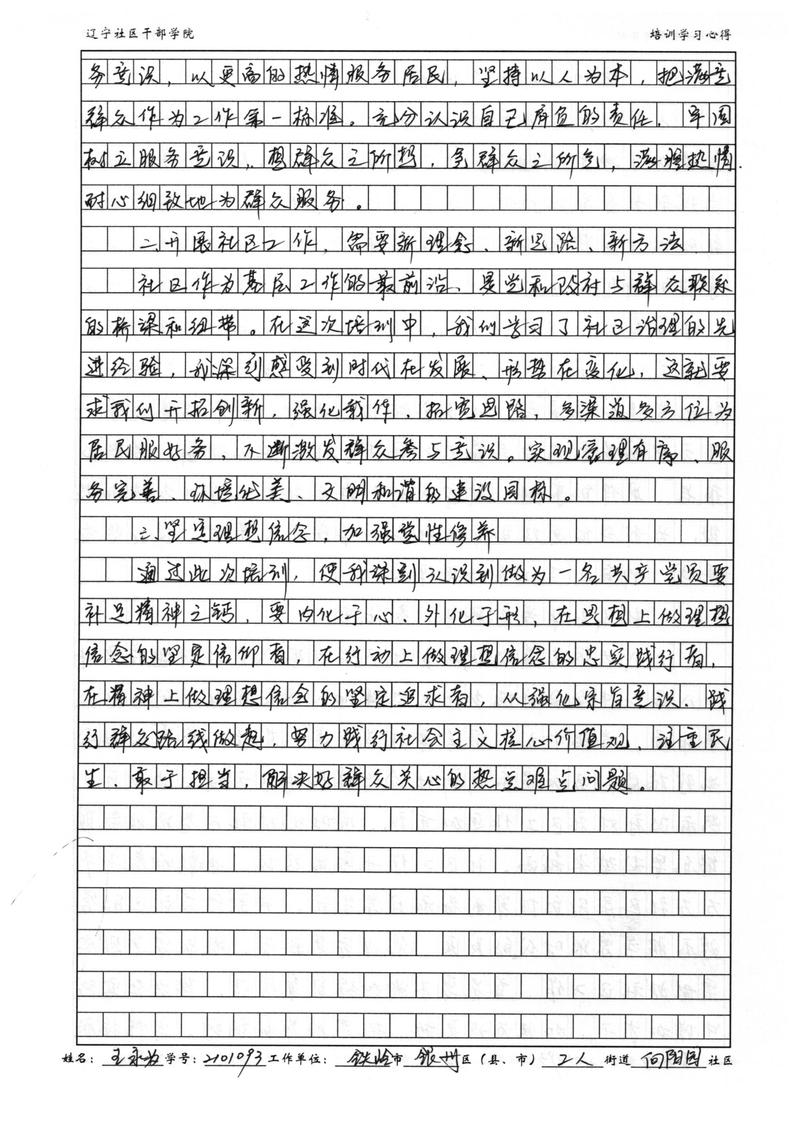 辽宁社区干部学院 培训学习心得
务意识，以更高的热情服务居民，坚持以人为本，把满意
群众作为工作第一标准。充分认识自己肩负的责任，牢固
树立服务意识，想群众之所想，急群众之所急，满腔热情、
耐心细致地为群众服务。
二、开展社区工作，需要新理念、新思路、新方法
社区作为基层工作的最前沿、是党和政府与群众联系
的桥梁和纽带。在这次培训中，我们学习了社区治理的先
进经验，我深刻感受到时代在发展、形势在变化，这就要
求我们开拓创新，强化载体，拓宽思路，多渠道多方位为
居民服好务，不断激发群众参与意识。实现管理有序、服
务完善、环境优美、文明和谐的建设目标。
三、坚定理想信念，加强党性修养
通过此次培训，使我深刻认识到做为一名共产党员要
补足精神之钙，要内化于心、外化于形，在思想上做理想
信念的坚定信仰者，在行动上做理想信念的忠实践行者，
在精神上做理想信念的坚定追求者，从强化宗旨意识、践
行群众路线做起，努力践行社会主义核心价值观，注重民
生、敢于担当，解决好群众关心的热点难点问题。
姓名：王永 学号：2101093 工作单位：铁岭市 银州区（县、市） 工人街道 向阳园社区